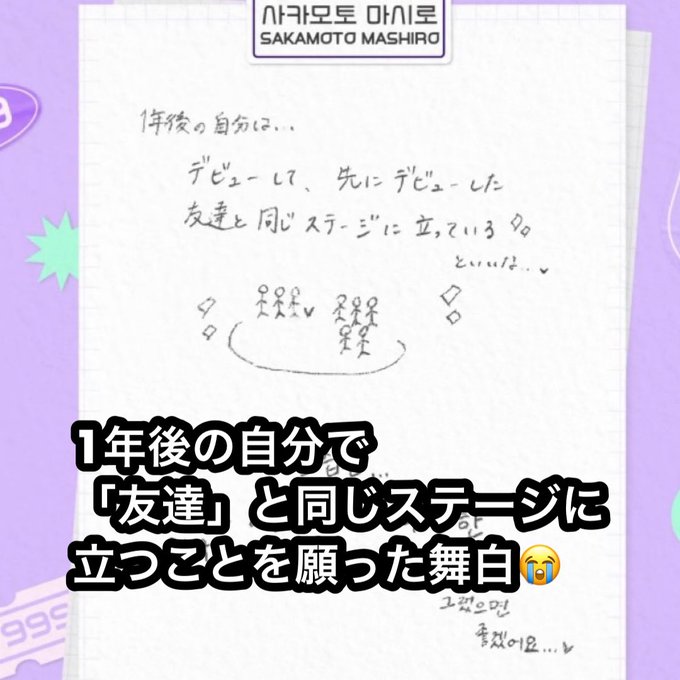 사카모토 마시로
SAKAMOTO MASHIRO
1年後の自分は...
デビューして、先にデビューした
友達と同じステージに立っている
といいな...
1年後の自分で
「友達」と同じステージに
立つことを願った舞白😭
한
그랬으면
좋겠어요...
999